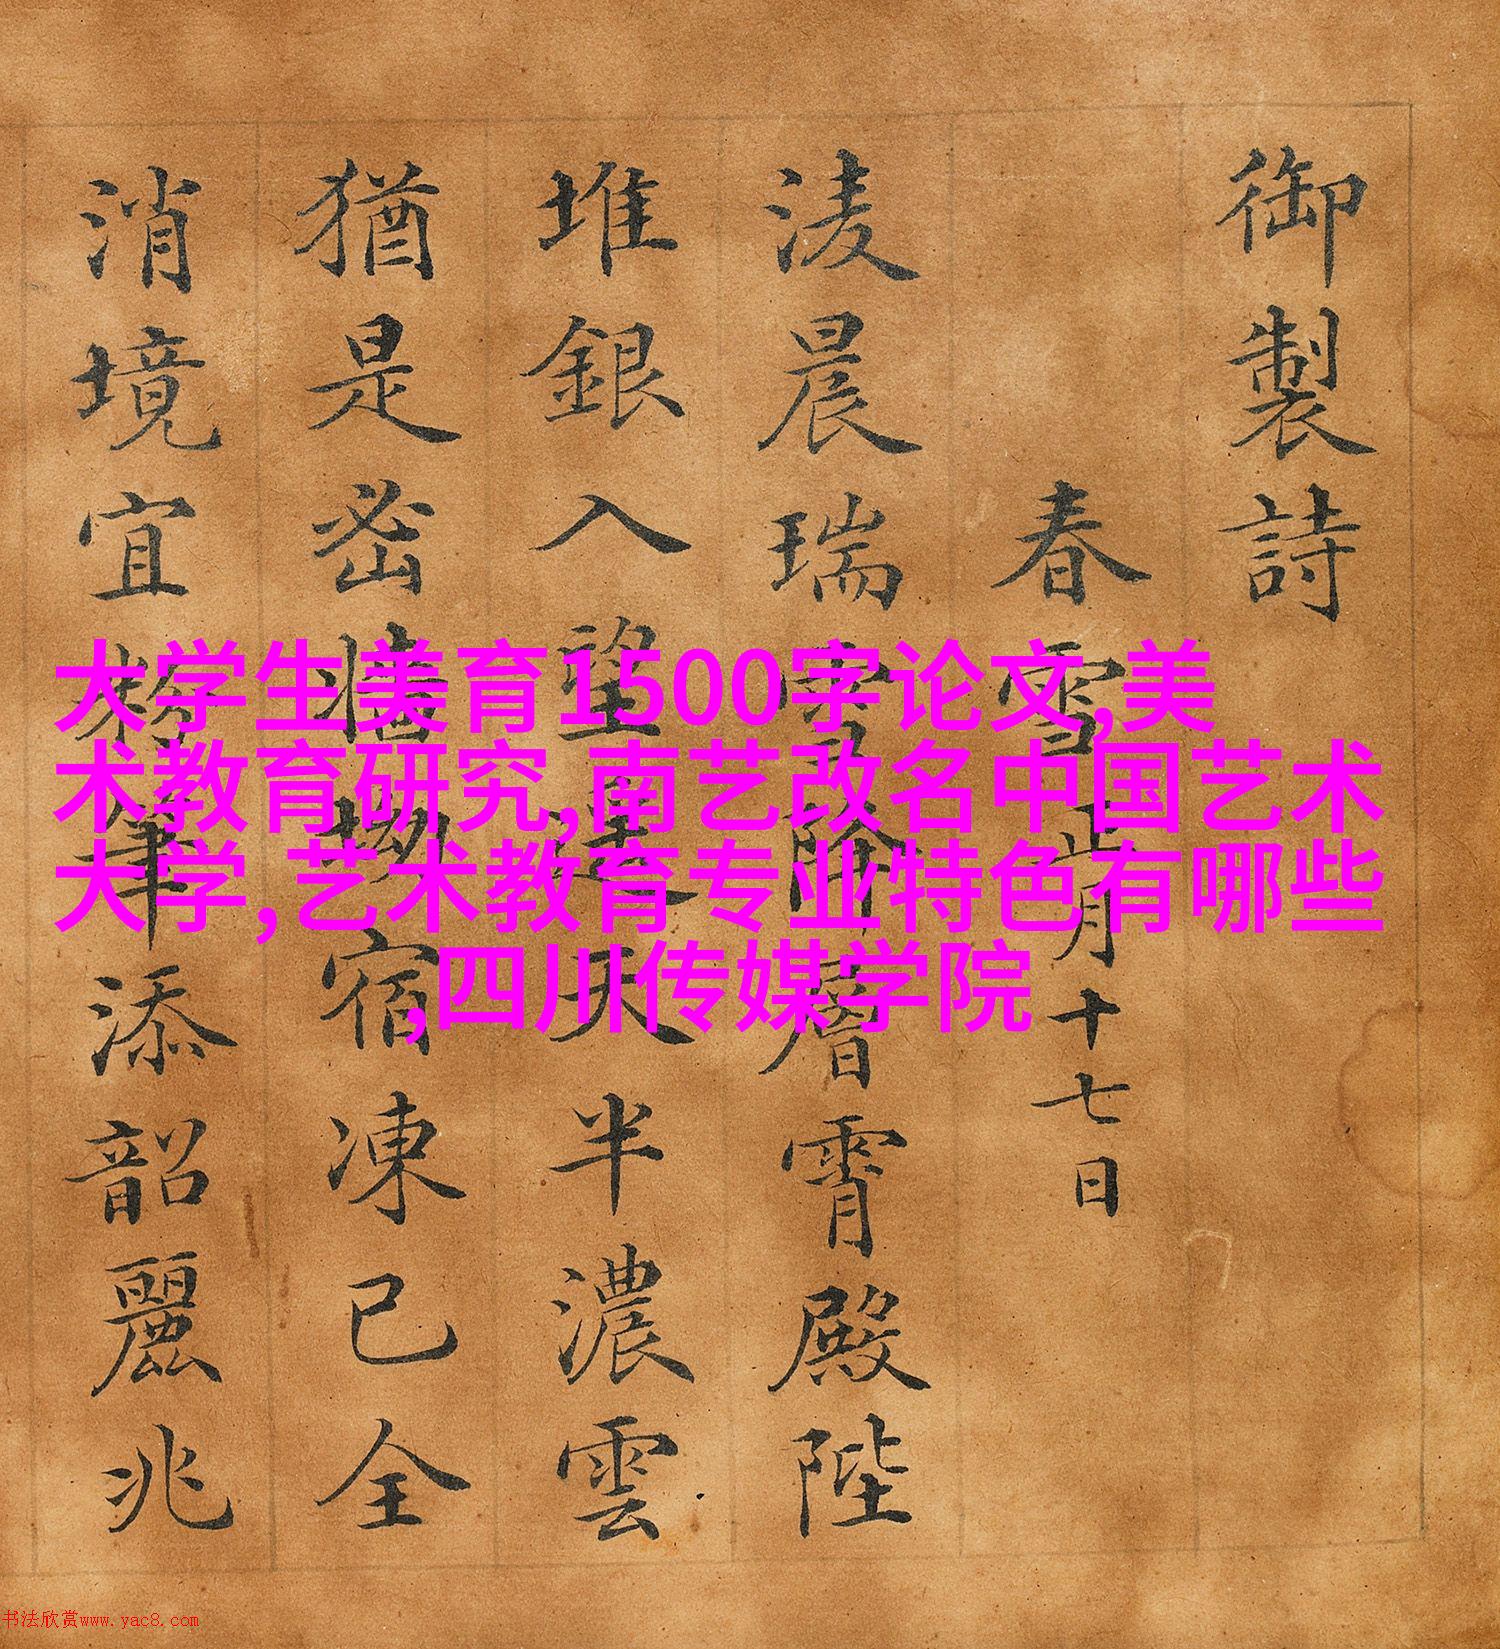 御製詩
春雪正月十七日
淩晨瑞雪降層霄殿陛
堆銀入望遥天半濃雲
猶是密牆坳宿凍已全
消境宜筆添韶麗兆
大学生美育1500字论文,美
术教育研究,南艺改名中国艺术
大学,艺术教育专业特色有哪些
,四川传媒学院
书法欣赏www.yac8.com